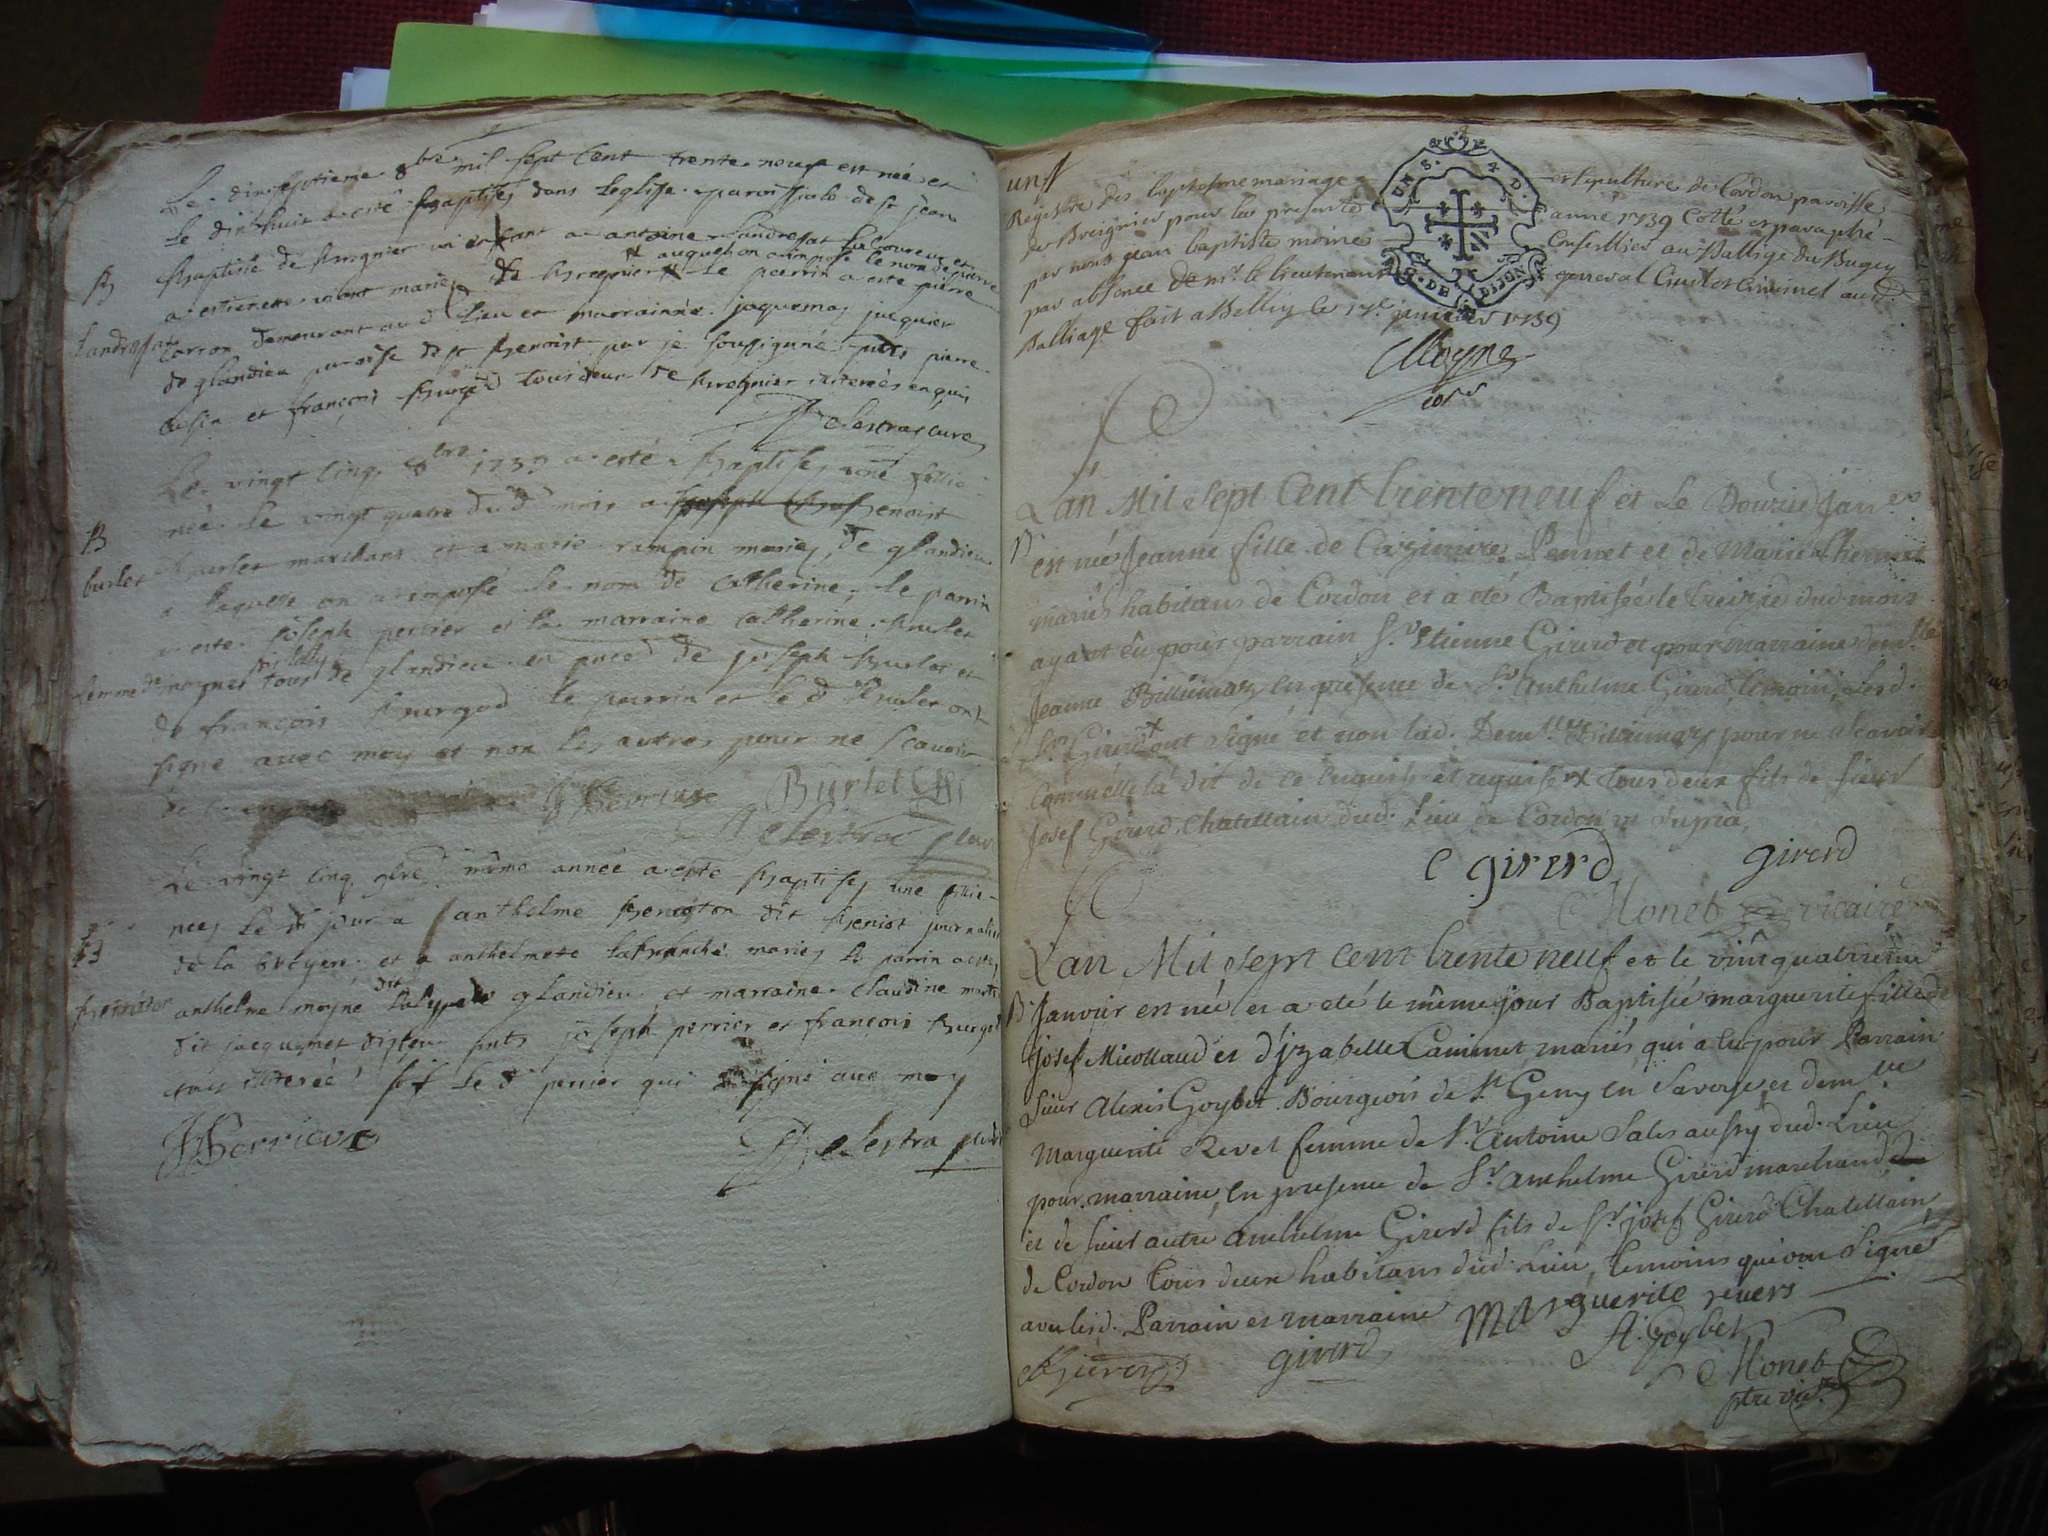 Le dixseptieme 8bre mil sept cent trente neuf est née et
le dixhuit a eté baptisé dans leglise paroissiale de st jean
B
baptiste de bregnier un enfant a antoine Landressat laboureur et
auquel on a imposé le nom de pierre
a estiennette mariés de bregnier le parrin a esté pierre
Landressat
carron demeurant au d lieu et marrainne jaquemaz juquier
de glandieu paroisse de st benoist par je soussigné pnts pierre
et françois burgod tous deux de bregnier illiterés enquis
Delestraz curé
Le vingt cinq 8bre 1739 a esté baptisée une fillie
née le vingt quatre du d mois a benoist
B
burlet
burlet marchand et a marie rampin mariés de glandieu
a laquelle on a imposé le nom de catherine, le parrin
a esté joseph perrier et la marraine catherine burlet
femme de moynet tous de glandieu en pnce de joseph burlet et
de françois burgod le parrin et le d burlet ont
signé avec moy et non les autres pour ne scavoir
Burlet
Delestra
Le vingt cinq 9bre même année a esté baptisée une fillie
née le d jour a anthelme beneton dit beniot journalier
B
beneton
de la bruyere et a anthelmete mariés le parrin a esté
anthelme moyne dit glandieu et marraine claudine
dit jacquemet pnts joseph perrier et françois burgod
tous illiteré sof le d perrier qui signé avec moy
J Perrier
Delestra
un
Registre des baptesme mariage et sepulture de Cordon paroisse
de Breignier pour la presente année 1739 Cotté et paraphé
par nous jean baptiste moine Conseillier au Balliage du Bugey
par absence de mr le lieutenant general Civil et Criminel aud.
Balliage fait a Belley le 17e janvier 1739
GEN. DE DIJON
Moyne
L'an Mil sept Cent trente neuf et Le Douzie Janer
B
est née Jeanne fille de Cazimire Pennet et de Marie Thermet
mariés habitans de Cordon et a eté Baptisée le treizie dud. mois
ayant eu pour parrain Sr. Etienne Girerd et pour marraine demlle
Jeanne Billiemaz en presence de Sr. Anthelme Girerd temoin, Lesd.
Srs. Girerd ont signé et non lad. Demlle Billiemaz pour ne sçavoir
comm'elle l'a dit de ce enquise et requise tous deux fils de sieur
Josef Girerd Chatellain dud. Lieu de Cordon
E girerd girerd
Moneb vicaire
L'an Mil sept cent trente neuf et le vint quatrieme
B
Janvier est née et a eté le même jour Baptisée marguerite fille de
josef Micollaud et d'yzabelle Caminet mariés qui a eu pour Parrain
sieur Alexis Goybet Bourgeois de St. Geny en Savoye et demlle
Marguerite Revet femme de Sr. Antoine Sales aussy dud. Lieu
pour marraine, en presence de Sr. Anthelme Girerd marchand
et de sieur autre Anthelme Girerd fils de Sr. josef Girerd Chatellain
de Cordon tous deux habitans dud. Lieu, temoins qui ont signé
avec lesd. Parrain et marraine Marguerite revers
A: goybet
girerd
Moneb
ptre vicre